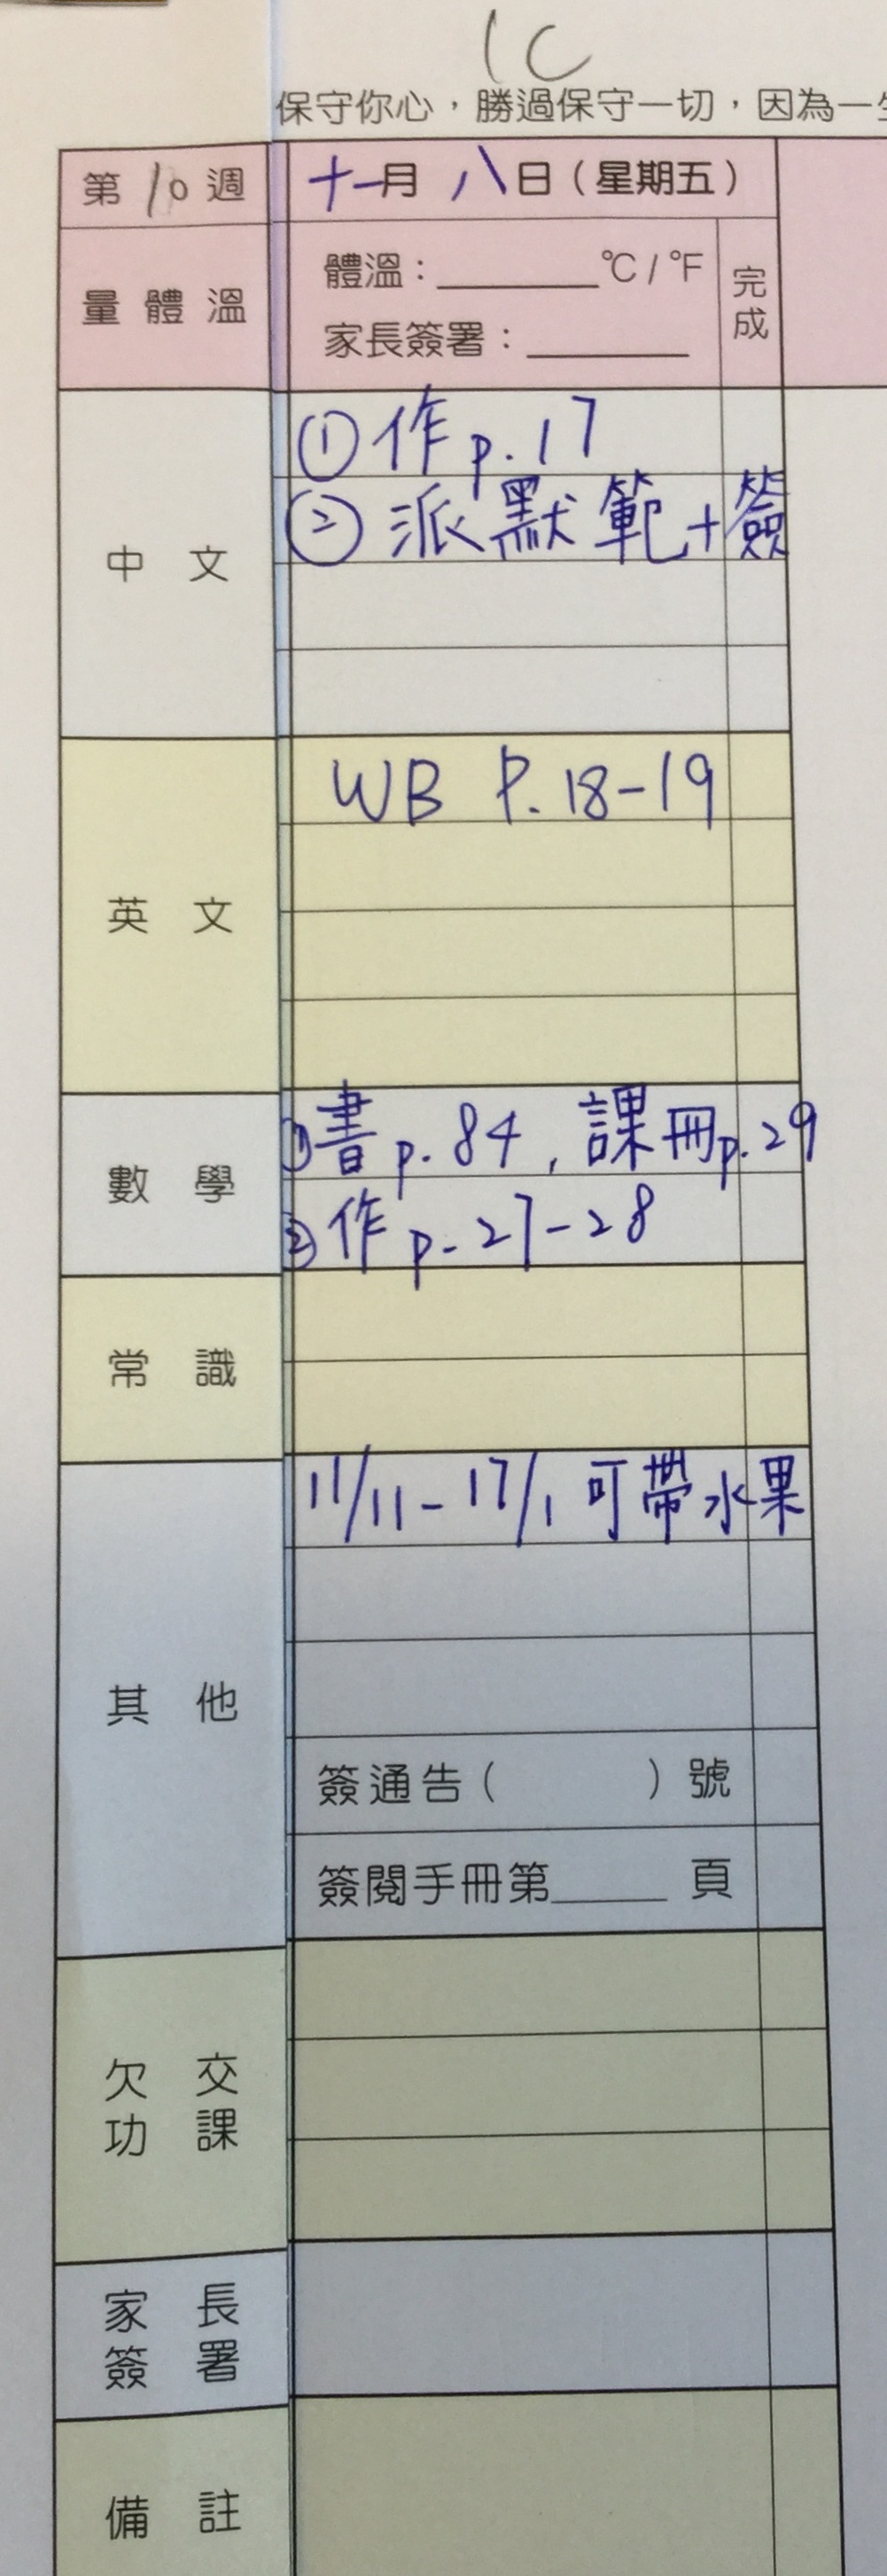 1C
保守你心，勝過保守一切，因為一生
第10週
十一月八日（星期五）
量體溫
體溫：______°C / °F
家長簽署：______
完成
中文
①作p.17
②派默範+簽
英文
WB P.18-19
數學
①書p.84，課冊p.29
②作p.27-28
常識
其他
11/11-17/1可帶水果
簽通告（ ）號
簽閱手冊第____頁
欠交
功課
家長
簽署
備註